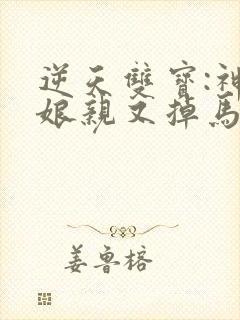 逆天雙寶:神
娘親又掉馬
姜魯榕